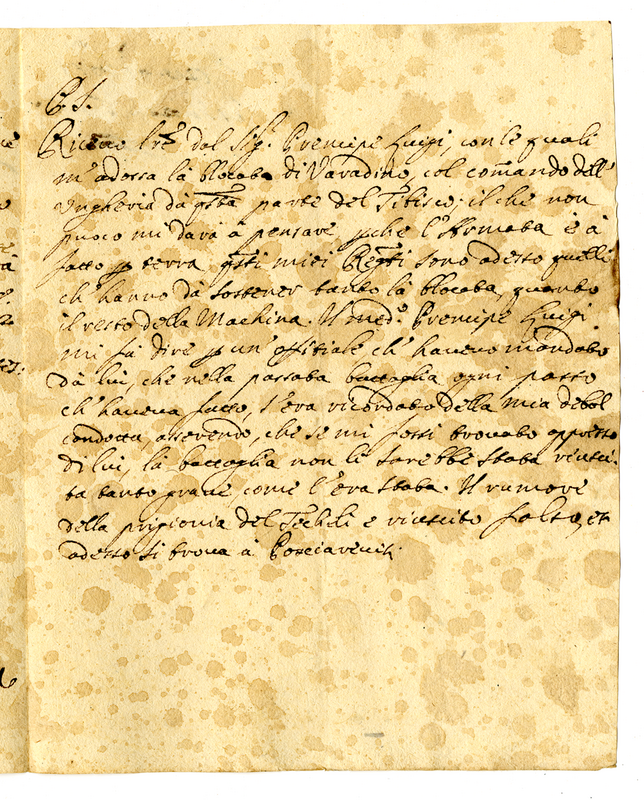 P. S.
Riceuo lrẽ dal Sig.r Prencipe Luigi, con le quali
m'adossa la bloccata di Varadino, col comãndo dell'
Vngheria da q̃sta parte del Tibisco; il che non
puoco mi darà à pensare, p̃che l'Armata è à
fatto p terra, q̃sti miei Reg.ti sono adesso quelli
ch'hanno dà sostener tanto la bloccata, quanto
il resto della Machina. Il med.o Prencipe Luigi
mi fà dire p un'offitiale ch'haueuo mandato
dà lui, che nella passata battaglia ogni passo
ch'haueua fatto, s'era ricordato della mia debol
condotta, asserendo, che se mi fossi trouato appresso
di lui, la battaglia non li sarebbe stata riusci-
ta tanto graue, come l'era stata. Il rumore
della prigionia del Techeli e riuscito falso, et
adesso si troua à